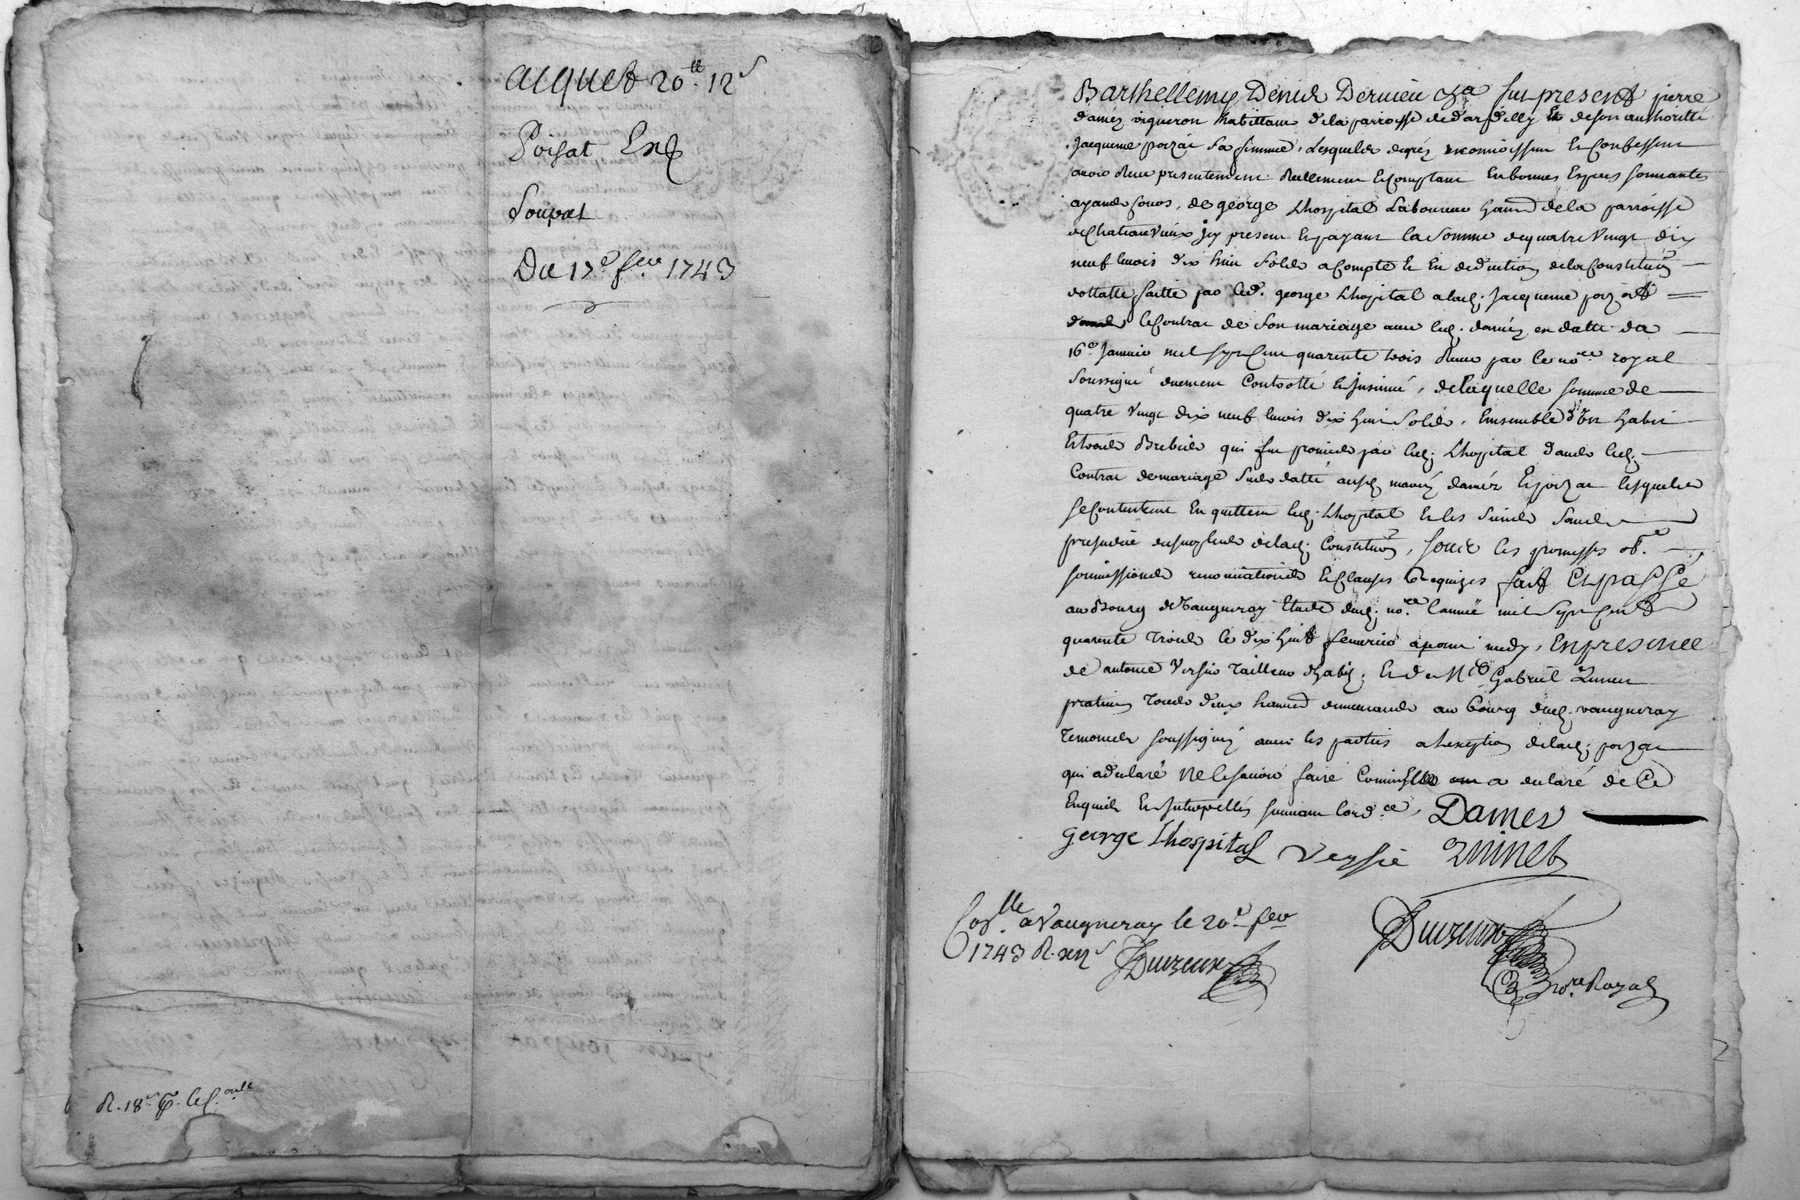 acquet 20.tt 12s
Poisat
Soupat
Du 17e fevr 1743
R. 18s
Barthellemy Deniel Dernieu fut present pierre
damez vigneron habittant de la parroisse de dardilly Et de son authoritté
Jacqueme poizat sa femme, Lesquels de gré reconnoissent et Confessent
avoir Receu presentement Reellement et Comptant En bonnes Especes sonnantes
ayants cours, de george Lhospital Laboureur de la parroisse
de Chatteauvieux Icy present et payant la somme de quatre vingt dix
neuf livres dix huit sols acompte et en deduction de la Constitution
dottalle faitte par led. george Lhospital a lad. Jacqueme poizat
le Contrat de son mariage avec led. damez en datte du
16e Janvier mil sept cent quarente trois Receu par le nore royal
soussigné duement Controllé et Insinué, de laquelle somme de
quatre vingt dix neuf livres dix huit sols, Ensemble d'un habit
Et trois Brebis qui fut promis par led. Lhospital dans led.
Contrat de mariage susdatté ausd. mariez damez et poizat lesquels
se Contentent En quittent led. Lhospital et les siens sans
prejudice du surplus de lad. Constitution, sous les promesses ob.e
soumissions renonciations et Clauses Requizes fait Et passé
au Bourg de Vaugneray Etude dud. nore. l'année mil sept cent
quarente Trois le dix huit fevrier apres midy, En presence
de antoine Versie Tailleur d'habis. et de Me Gabriel Zuinet
praticien Tous deux demeurants au bourg dud. vaugneray
Temoins soussignéz avec les parties a l'exception de lad. poizat
qui a declaré ne le savoir faire a declaré de Ce
Enquis Et Interpellés suivant l'ord.ce, Dames
George Lhospital Versie Zuinet
Conlle a Vaugneray le 20e fevr
1743 R. xii s Duizeux
Duizeux
nore Royal